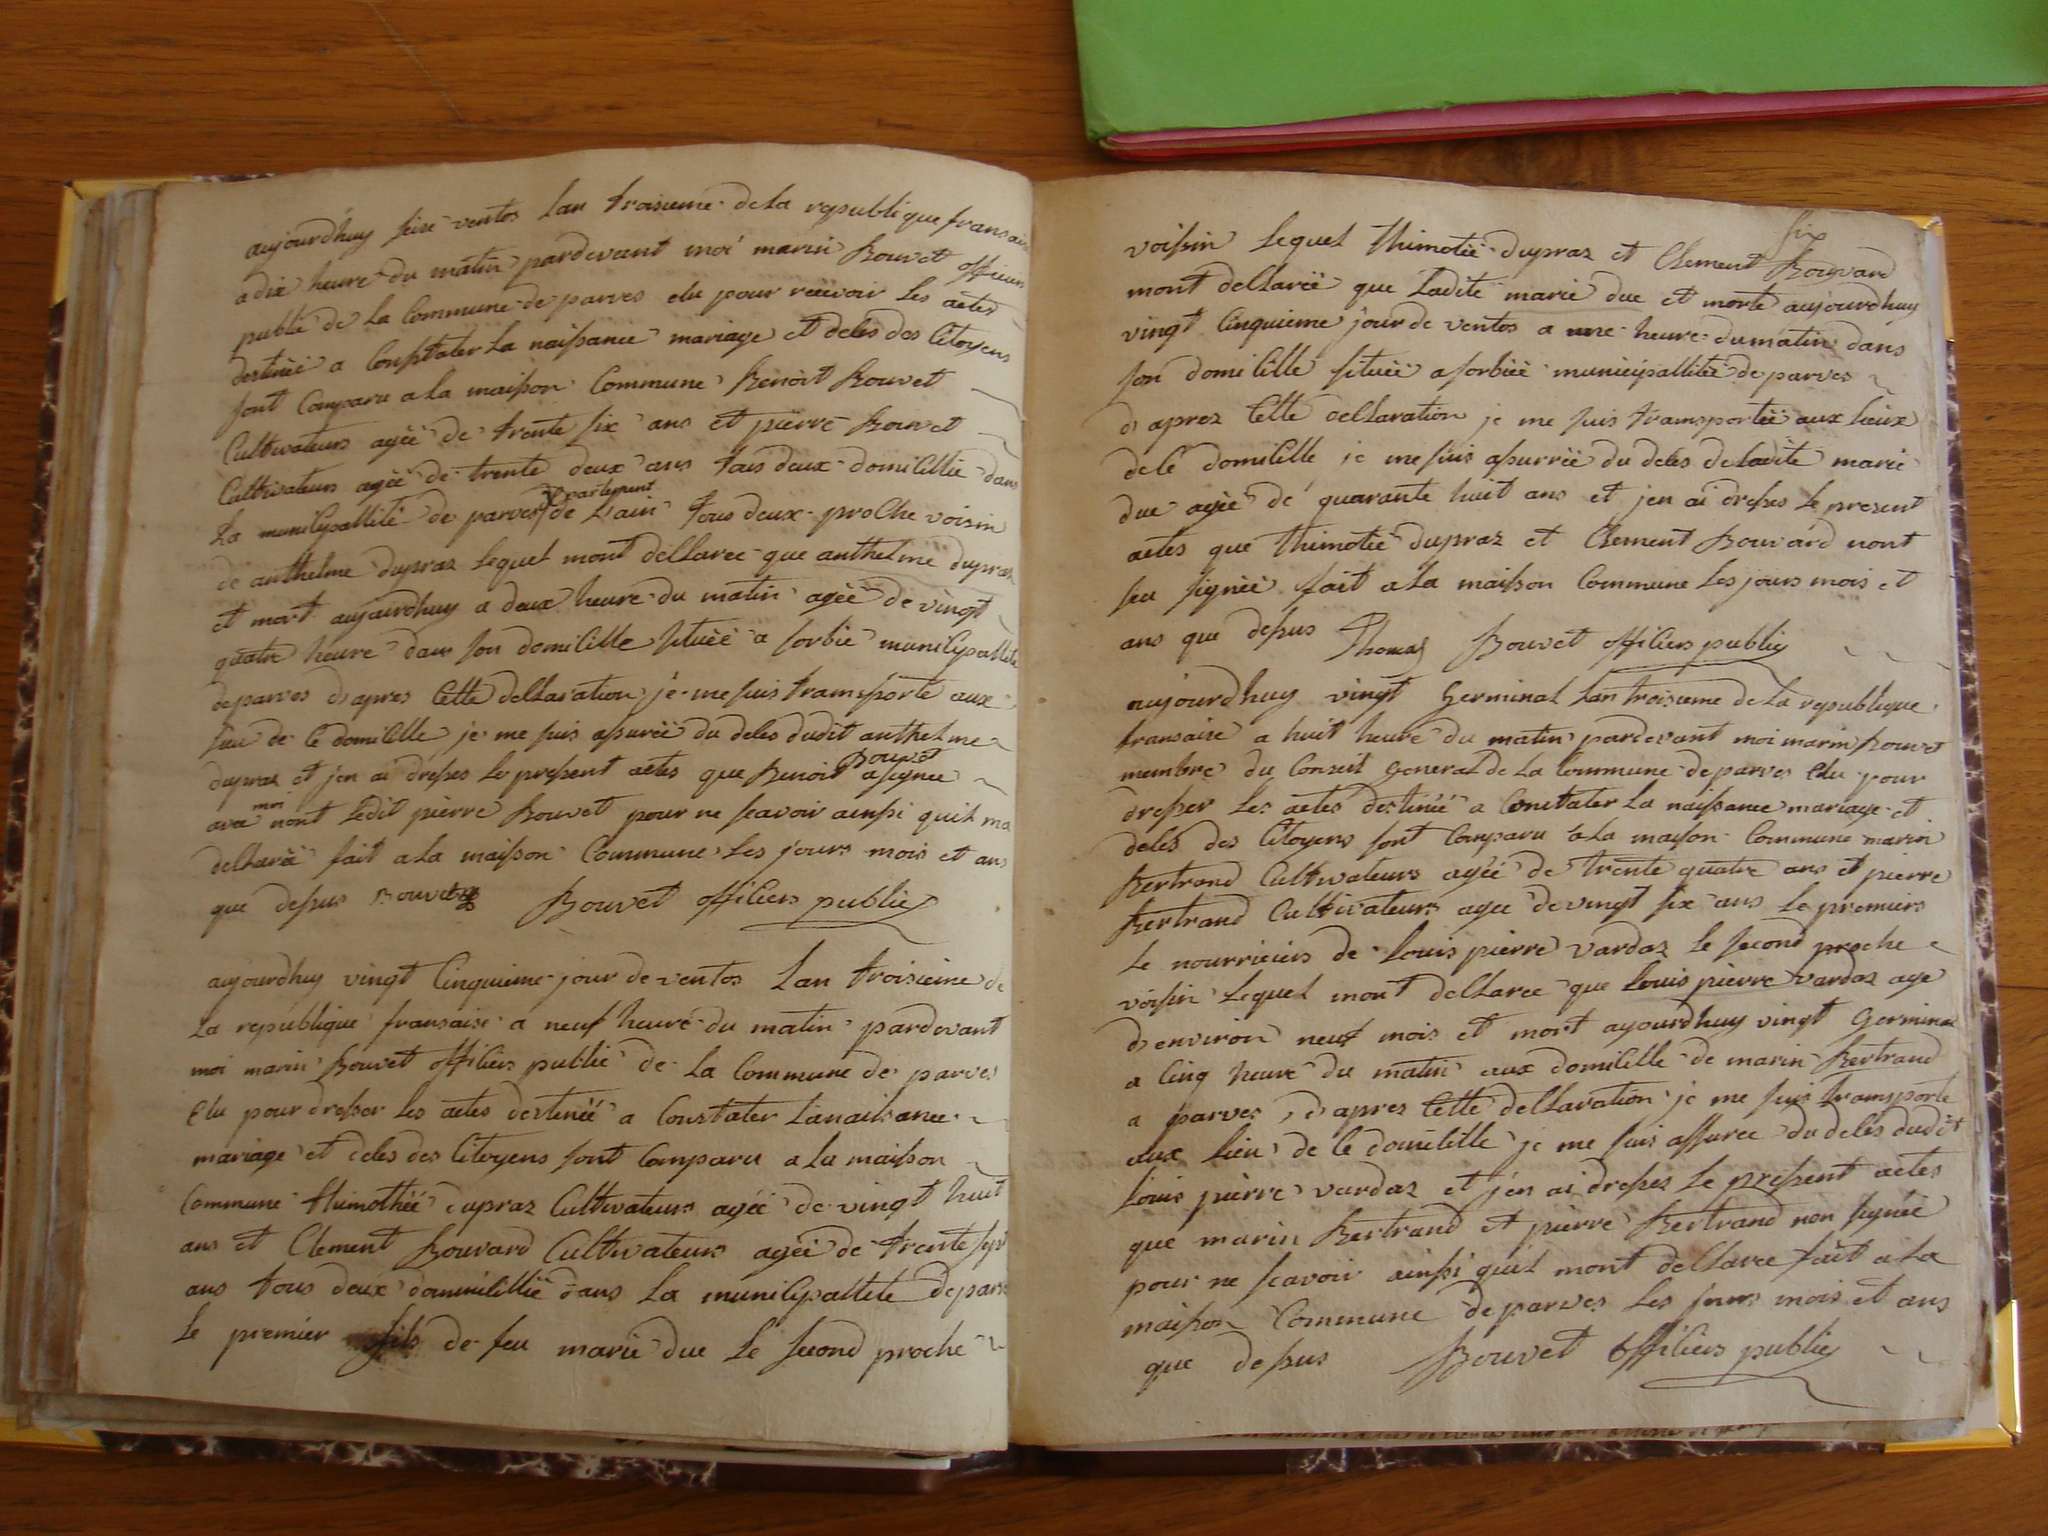 aujourdhuy seise ventos lan troisieme de la republique fransaise
a dix heure du matin pardevant moi marin Bouvet officiers
public de la Commune de parves elu pour recevoir les actes
destinéé a Constater la naissance mariage et deces des Citoyens
sont Comparu a la maisson Commune Benoit Bouvet
Cultivateurs agéé de trente six ans et pierre Bouvet
Cultivateurs agéé de trente deux ans tous deux domicillié dans
la municipallité de parves departement de Lain tous deux proche voisin
de anthelme dupraz lequel mont decLaree que anthelme dupraz
et mort aujourdhuy a deux heure du matin agéé de vingt
quatre heure dans son domicille situéé a sorbié municipallite
de parves daprès Cette decLaration je me suis transporté aux
lieu de ce domicille je me suis asuréé du deces dudit anthelme
dupraz et jen ai dresses le present actes que Benoit Bouvet a signee
avec moi nont ledit pierre Bouvet pour ne scavoir ainssi quil ma
decLaréé fait a la maisson Commune les jours mois et ans
que dessus Bouvet Bouvet officiers public
aujourdhuy vingt Cinquieme jour de ventos Lan troisieme de
La republique fransaise a neuf heure du matin pardevant
moi marin Bouvet officiers public de la Commune de parves
Elu pour dresser les actes destinéé a Constater la naissance
mariage et deces des Citoyens sont Comparu a la maisson
Commune thimothéé dupraz Cultivateurs agéé de vingt huit
ans et Clement Bouvard Cultivateurs agéé de trente sept
ans tous deux domicillié dans la municipallite de parves
le premier fils de feu marie due le second proche
six
voissin lequel thimotéé dupraz et Clement Bouvard
mont decLaréé que Ladite marie due et morte aujourdhuy
vingt Cinquieme jour de ventos a une heure du matin dans
son domicille situéé a sorbiéé municipallitéé de parves
d aprez Cette decLaration je me suis transportéé aux lieux
de ce domicille je me suis asurréé du deces de ladite marie
due agéé de quarante huit ans et jen ai dresses le present
actes que thimotéé dupraz et Clement Bouvard nont
seu signéé fait a la maisson Commune les jours mois et
ans que dessus Thomas Bouvet officiers public
aujourdhuy vingt Germinal Lan troisieme de la republique
fransaise a huit heure du matin pardevant moi marin Bouvet
membre du Conseil General de la Commune de parves Elu pour
dresser les actes destinéé a Constater la naissance mariage et
deces des Citoyens sont Comparu a la maison Commune marin
Bertrand Cultivateurs agéé de trente quatre ans et pierre
Bertrand Cultivateurs agee de vingt six ans le premiers
le nourriciers de Louis pierre vardaz le second proche
voissin lequel mont decLaree que Louis pierre vardaz age
d environ neuf mois et mort ayourdhuy vingt Germinal
a Cinq heure du matin aux domicille de marin Bertrand
a parves, d aprez Cette decLaration je me suis transporte
aux lieu de ce domicille je me suis assuree du deces dudit
Louis pierre vardaz et jen ai dresses le present actes
que marin Bertrand et pierre Bertrand non signéé
pour ne scavoir ainssi quil mont decLaree fait a la
maisson Commune de parves les jours mois et ans
que dessus Bouvet officiers public